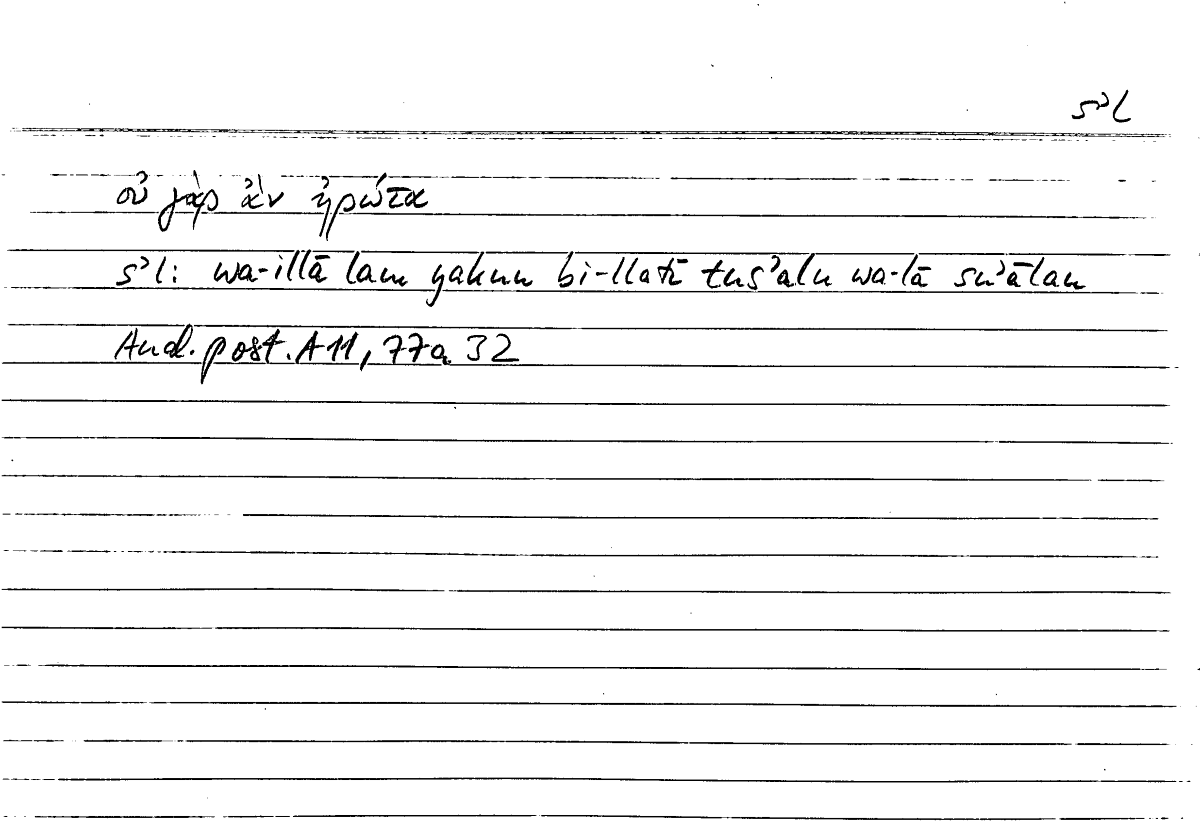 sʾl
οὐ γὰρ ἂν ἠρώτα
sʾl: wa-illā lam yakun bi-llatī tusʾalu wa-lā suʾālan
Anal. post. A 11, 77a 32